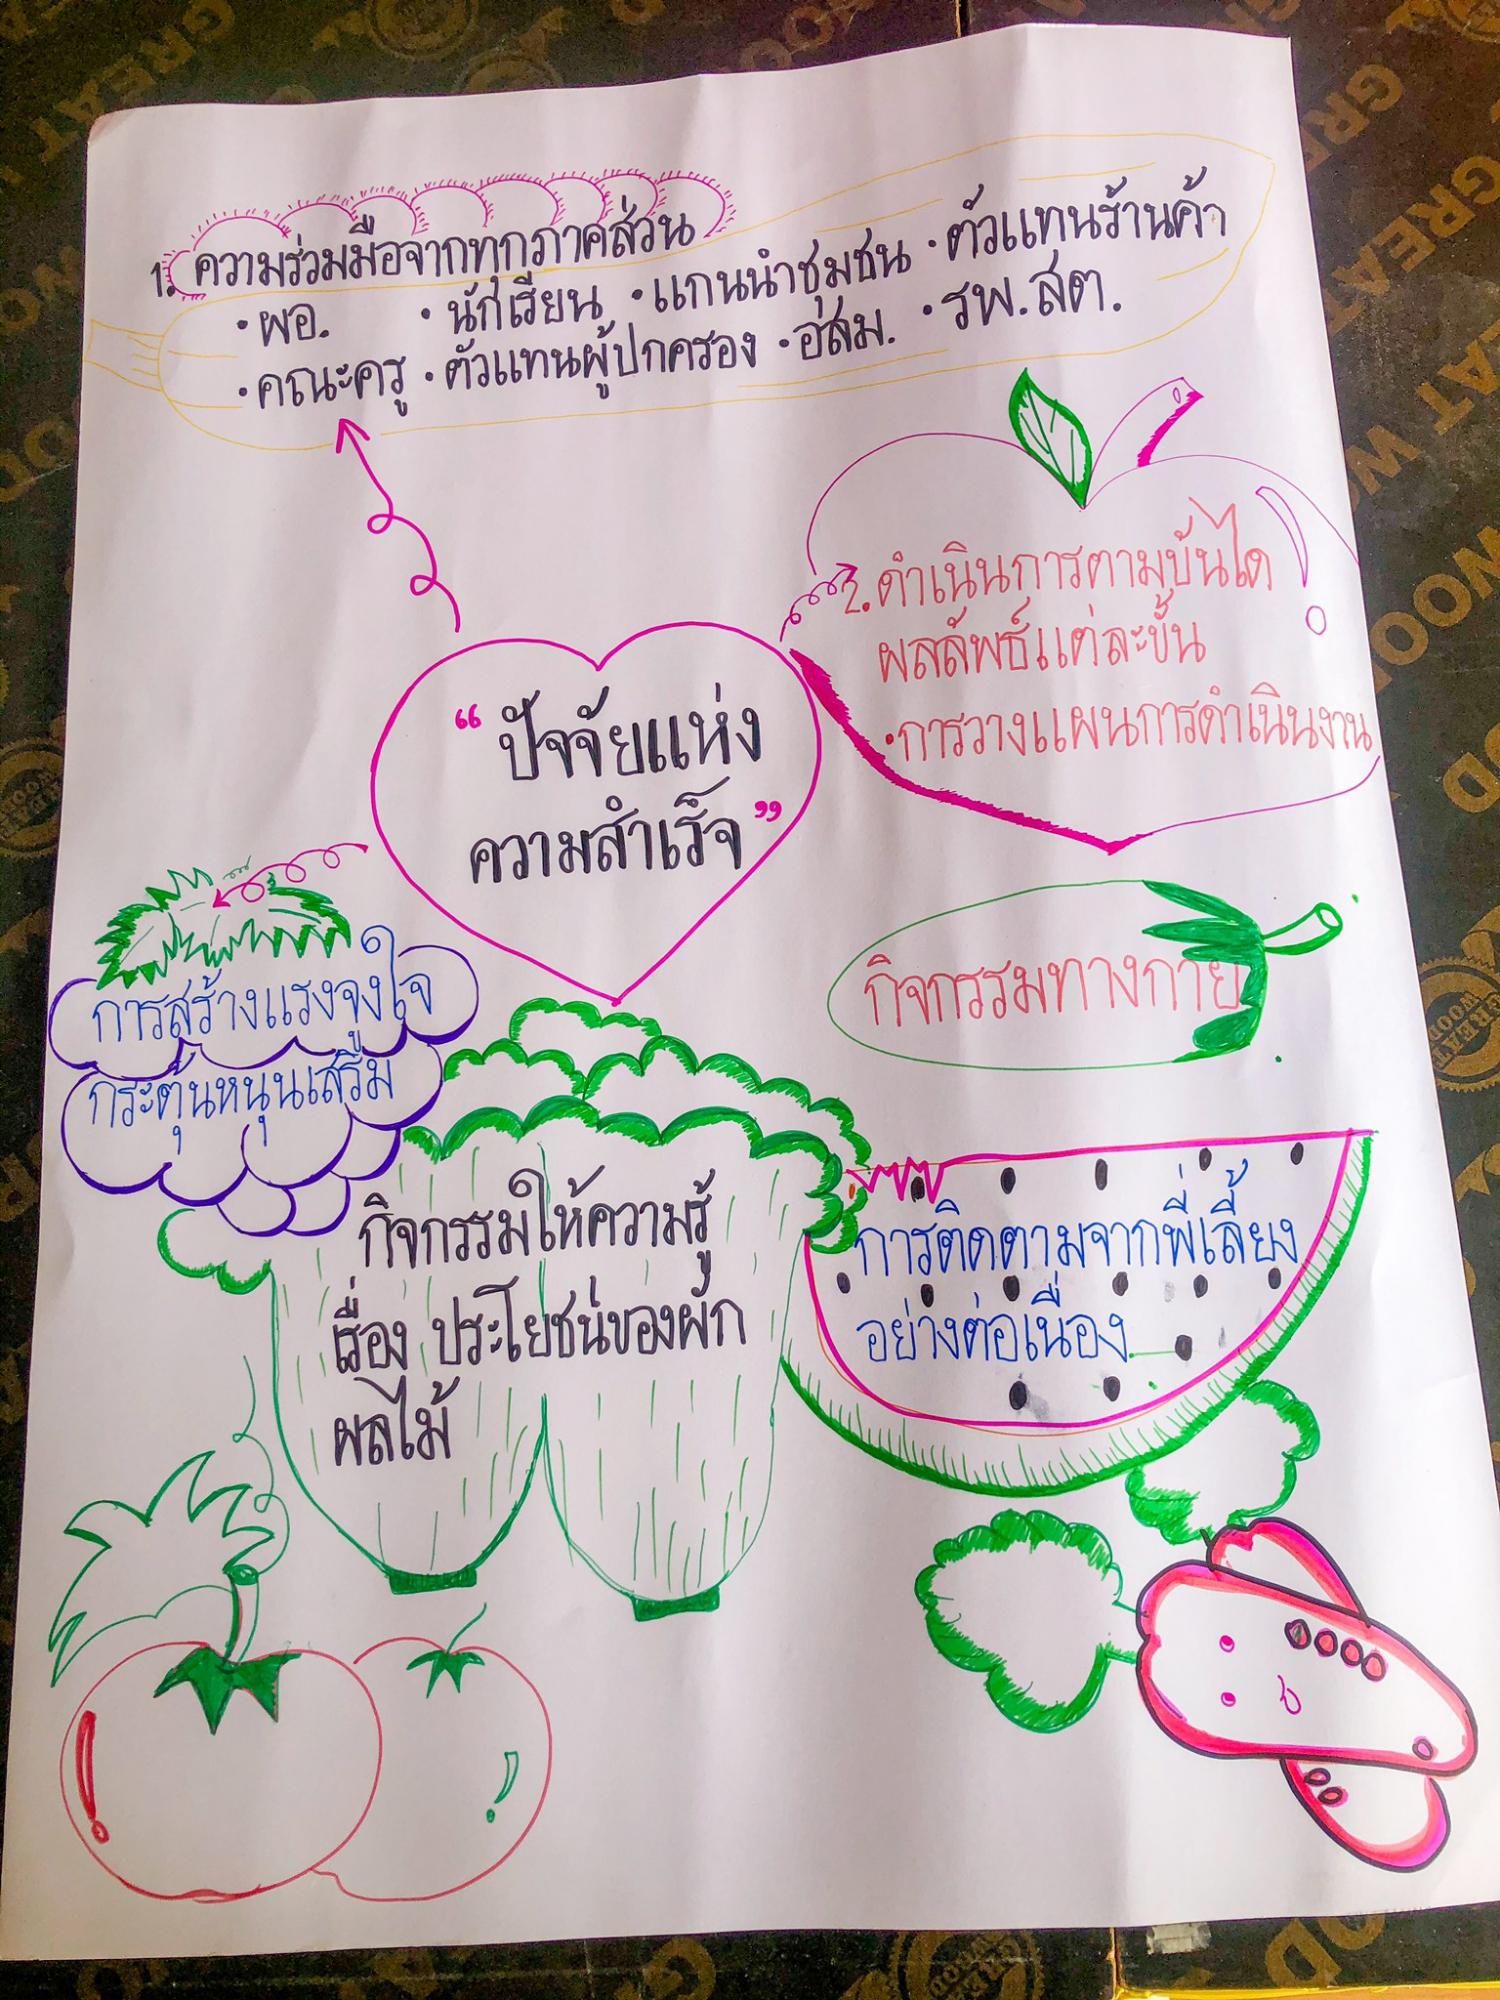 1. ความร่วมมือจากทุกภาคส่วน
· ผอ. · นักเรียน · แกนนำชุมชน · ตัวแทนร้านค้า
· คณะครู · ตัวแทนผู้ปกครอง · อสม. · รพ.สต.
2. ดำเนินการตามบันได
ผลลัพธ์แต่ละขั้น
· การวางแผนการดำเนินงาน
“ ปัจจัยแห่ง
ความสำเร็จ ”
กิจกรรมทางกาย
การสร้างแรงจูงใจ
กระตุ้นหนุนเสริม
กิจกรรมให้ความรู้
เรื่อง ประโยชน์ของผัก
ผลไม้
การติดตามจากพี่เลี้ยง
อย่างต่อเนื่อง
GREAT WOOD
GREAT WOOD
GREAT WOOD